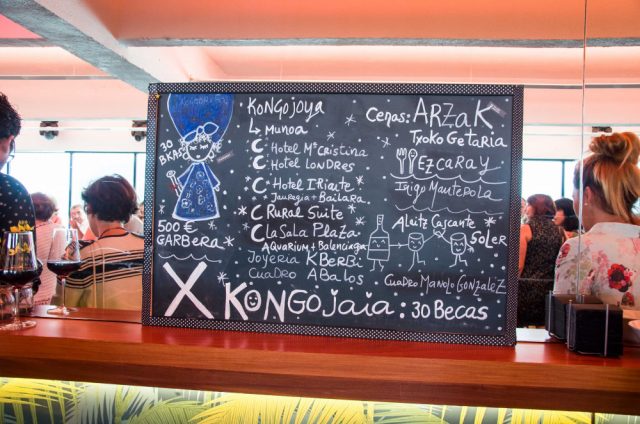 30
BKAS
500 €
GARBERA
KONGOJOYA
↳ MUNOA
HOTEL Mª CRISTINA
HOTEL LONDRES
HOTEL IRIARTE
JAUREGIA + BAILARA
RURAL SUITE
LA SALA PLAZA
AQUARIUM + BALENCIAGA
JOYERIA KBERBI
CUADRO ABALOS
CENAS: ARZAK
TXOKO GETARIA
EZCARAY
IÑIGO MANTEROLA
AleiTz CASCANTE
SOLER
CUADRO MANOLO GONZALEZ
X KONGOJAIA: 30 BECAS